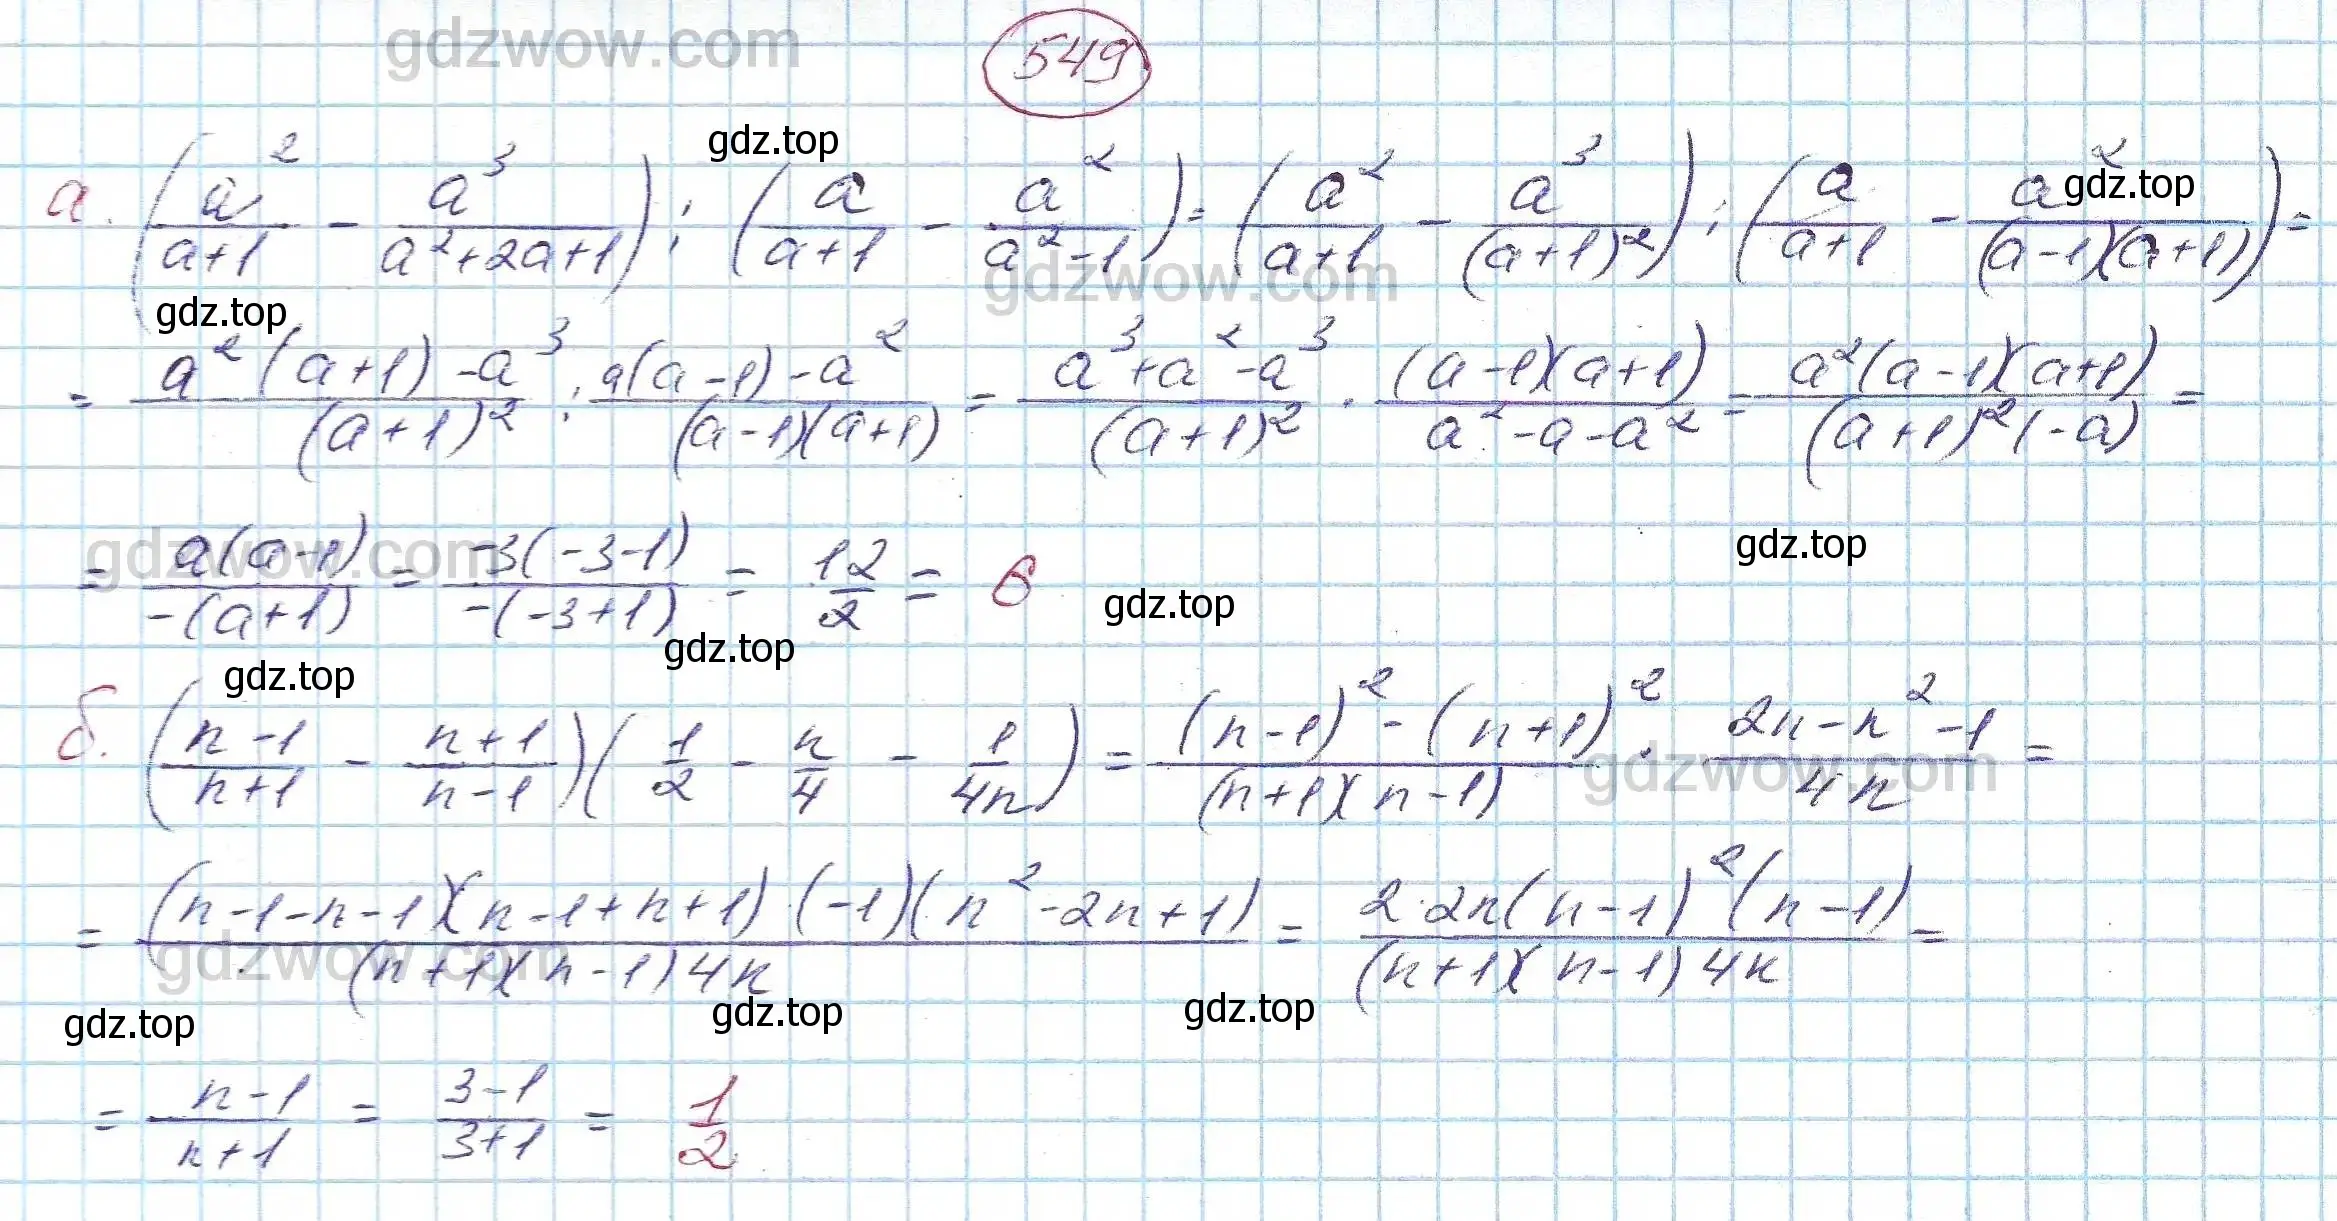 gdzwow.com
549
gdz.top
а. (a²/(a+1) - a³/(a²+2a+1)) : (a/(a+1) - a²/(a²-1)) = (a²/(a+1) - a³/(a+1)²) : (a/(a+1) - a²/((a-1)(a+1))) =
gdz.top
gdzwow.com
gdz.top
= (a²(a+1)-a³)/(a+1)² : (a(a-1)-a²)/((a-1)(a+1)) = (a³+a²-a³)/(a+1)² · ((a-1)(a+1))/(a²-a-a²) = (a²(a-1)(a+1))/((a+1)²(-a)) =
gdzwow.com
gdz.top
= a(a-1)/(-(a+1)) = -3(-3-1)/(-(-3+1)) = 12/2 = 6
gdz.top
gdz.top
gdz.top
б. ((n-1)/(n+1) - (n+1)/(n-1))(1/2 - n/4 - 1/4n) = ((n-1)²-(n+1)²)/((n+1)(n-1)) · (2n-n²-1)/4n =
gdzwow.com
= ((n-1-n-1)(n-1+n+1)·(-1)(n²-2n+1))/((n+1)(n-1)4n) = (2·2n(n-1)²(n-1))/((n+1)(n-1)4n) =
gdzwow.com
gdz.top
gdz.top
gdz.top
= (n-1)/(n+1) = (3-1)/(3+1) = 1/2